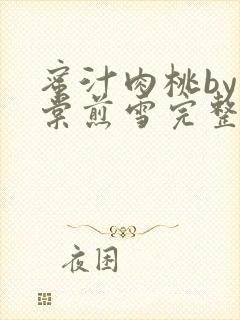 蜜汁肉桃by
棠煎雪完整
夜困